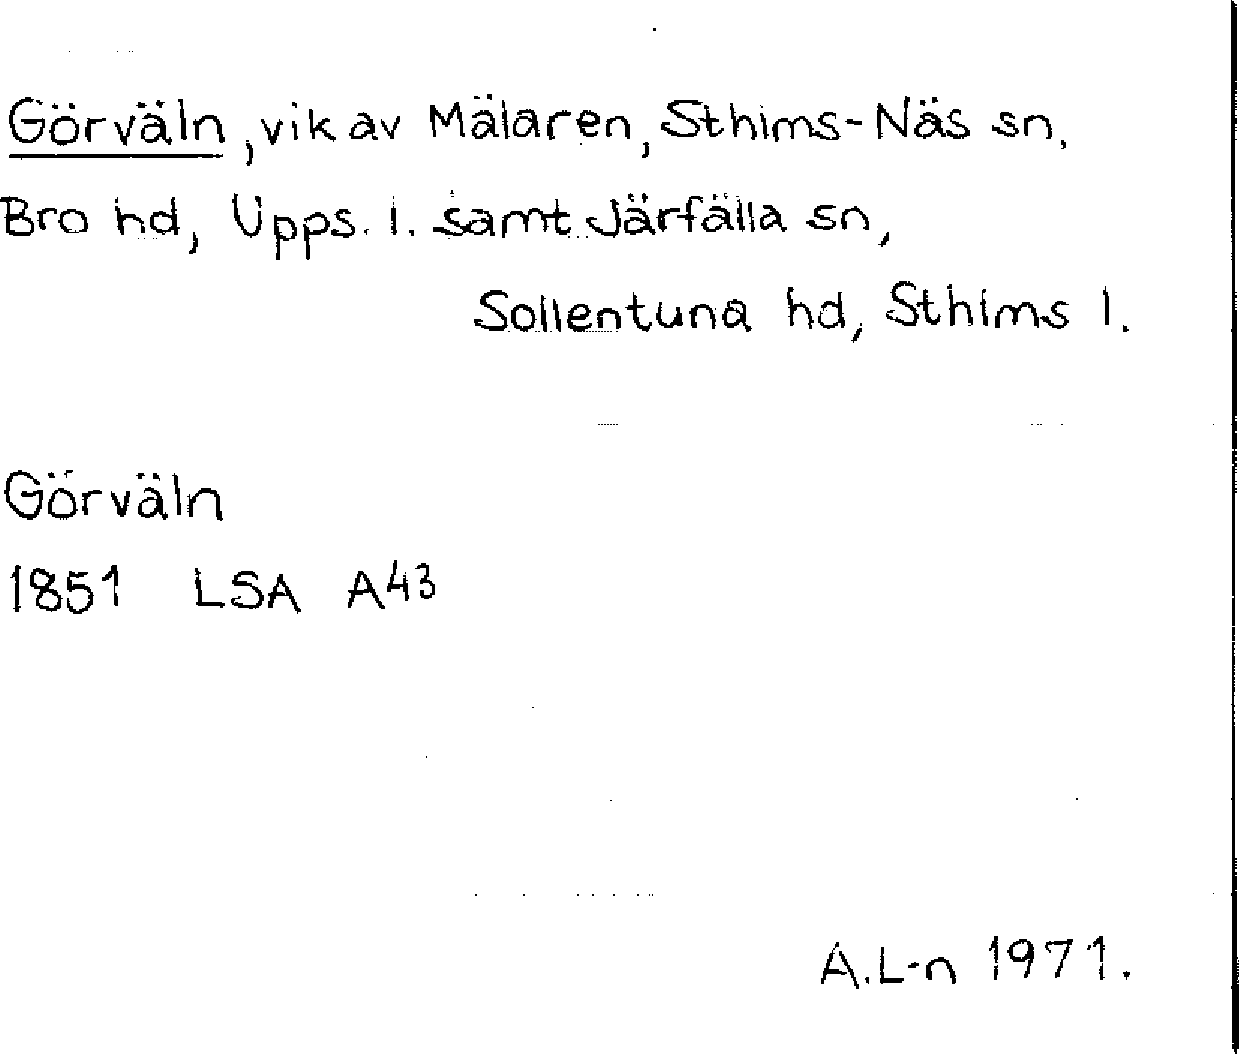 Görväln, vik av Mälaren, Sthlms-Näs sn,
Bro hd, Upps. l. samt Järfälla sn,
Sollentuna hd, Sthlms l.
Görväln
1851 LSA A43
A.L-n 1971.